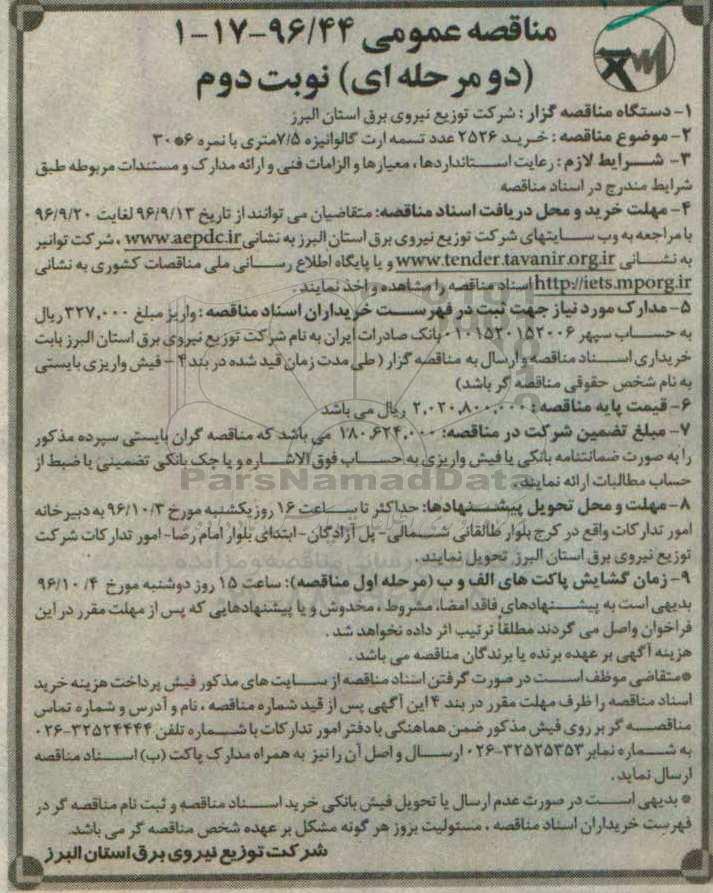 مناقصه عمومی ۹۶/۴۴-۱۷-۱
(دو مرحله ای) نوبت دوم
۱- دستگاه مناقصه گزار : شرکت توزیع نیروی برق استان البرز
۲- موضوع مناقصه : خرید ۲۵۲۶ عدد تسمه ارت گالوانیزه ۷/۵متری با نمره ۶*۳۰
۳- شرایط لازم : رعایت استانداردها ، معیارها و الزامات فنی و ارائه مدارک و مستندات مربوطه طبق
شرایط مندرج در اسناد مناقصه
۴- مهلت خرید و محل دریافت اسناد مناقصه: متقاضیان می توانند از تاریخ ۹۶/۹/۱۳ لغایت ۹۶/۹/۲۰
با مراجعه به وب سایتهای شرکت توزیع نیروی برق استان البرز به نشانی www.aepdc.ir ، شرکت توانیر
به نشانی www.tender.tavanir.org.ir و یا پایگاه اطلاع رسانی ملی مناقصات کشوری به نشانی
http://iets.mporg.ir اسناد مناقصه را مشاهده و اخذ نمایند .
۵- مدارک مورد نیاز جهت ثبت در فهرست خریداران اسناد مناقصه : واریز مبلغ ۳۲۷,۰۰۰ ریال
به حساب سپهر ۰۱۰۱۵۲۰۱۵۲۰۰۶ بانک صادرات ایران به نام شرکت توزیع نیروی برق استان البرز بابت
خریداری اسناد مناقصه و ارسال به مناقصه گزار ( طی مدت زمان قید شده در بند ۴ - فیش واریزی بایستی
به نام شخص حقوقی مناقصه گر باشد)
۶- قیمت پایه مناقصه : ۲,۰۲۰,۸۰۰,۰۰۰ ریال می باشد
۷- مبلغ تضمین شرکت در مناقصه: ۱۸۰,۶۲۴,۰۰۰ می باشد که مناقصه گران بایستی سپرده مذکور
را به صورت ضمانتنامه بانکی یا فیش واریزی به حساب فوق الاشاره و یا چک بانکی تضمینی یا ضبط از
حساب مطالبات ارائه نمایند.
۸- مهلت و محل تحویل پیشنهادها: حداکثر تا ساعت ۱۶ روز یکشنبه مورخ ۹۶/۱۰/۳ به دبیرخانه
امور تدارکات واقع در کرج بلوار طالقانی شمالی- پل آزادگان- ابتدای بلوار امام رضا- امور تدارکات شرکت
توزیع نیروی برق استان البرز تحویل نمایند .
۹- زمان گشایش پاکت های الف و ب (مرحله اول مناقصه): ساعت ۱۵ روز دوشنبه مورخ ۹۶/۱۰/۴
بدیهی است به پیشنهادهای فاقد امضا، مشروط ، مخدوش و یا پیشنهادهایی که پس از مهلت مقرر در این
فراخوان واصل می گردند مطلقاً ترتیب اثر داده نخواهد شد .
هزینه آگهی بر عهده برنده یا برندگان مناقصه می باشد .
*متقاضی موظف است در صورت گرفتن اسناد مناقصه از سایت های مذکور فیش پرداخت هزینه خرید
اسناد مناقصه را ظرف مهلت مقرر در بند ۴ این آگهی پس از قید شماره مناقصه ، نام و آدرس و شماره تماس
مناقصه گر بر روی فیش مذکور ضمن هماهنگی با دفتر امور تدارکات با شماره تلفن ۳۲۵۲۴۴۴۴-۰۲۶
به شماره نمابر ۳۲۵۲۵۳۵۳-۰۲۶ ارسال و اصل آن را نیز به همراه مدارک پاکت (ب) اسناد مناقصه
ارسال نماید .
* بدیهی است در صورت عدم ارسال یا تحویل فیش بانکی خرید اسناد مناقصه و ثبت نام مناقصه گر در
فهرست خریداران اسناد مناقصه ، مسئولیت بروز هر گونه مشکل بر عهده شخص مناقصه گر می باشد.
شرکت توزیع نیروی برق استان البرز
ParsNamadData